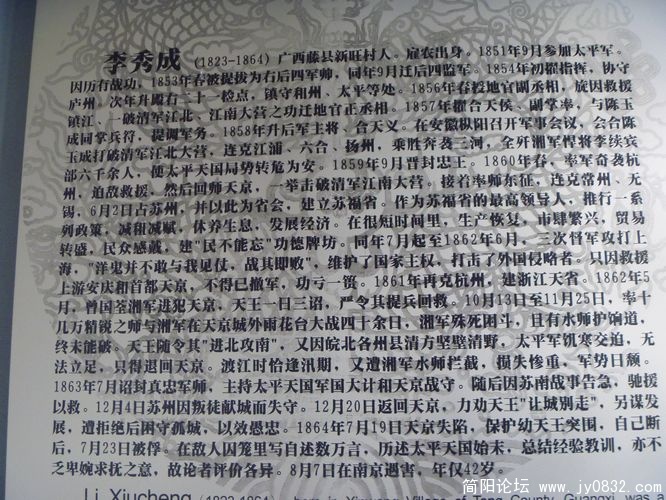 李秀成 (1823-1864) 广西藤县新旺村人。雇农出身。1851年9月参加太平军。
因历有战功，1853年春被提拔为右后四军帅，同年9月迁后四监军。1854年初擢指挥，协守
庐州，次年升殿右二十一检点，镇守和州、太平等处。1856年春授地官副丞相，旋因救援
镇江、一破清军江北、江南大营之功迁地官正丞相。1857年擢合天侯、副掌率，与陈玉
成同掌兵符，提调军务。1858年升后军主将、合天义。在安徽枞阳召开军事会议，会合陈
玉成打破清军江北大营，连克江浦、六合、扬州，乘胜奔袭三河，全歼湘军悍将李续宾
部六千余人，使太平天国局势转危为安。1859年9月晋封忠王。1860年春，率军奇袭杭
州，迫敌救援，然后回师天京，一举击破清军江南大营。接着率师东征，连克常州、无
锡，6月2日占苏州，并以此为省会，建立苏福省。作为苏福省的最高领导人，推行一系
列政策，减租减赋，休养生息，发展经济。在很短时间里，生产恢复，市肆繁兴，贸易
转盛，民众感戴，建"民不能忘"功德牌坊。同年7月起至1862年6月，三次督军攻打上
海，"洋鬼并不敢与我见仗，战其即败"，维护了国家主权，打击了外国侵略者。只因救援
上游安庆和首都天京，不得已撤军，功亏一篑。1861年再克杭州，建浙江天省。1862年5
月，曾国荃湘军进犯天京，天王一日三诏，严令其提兵回救。10月13日至11月25日，率十
几万精锐之师与湘军在天京城外雨花台大战四十余日，湘军殊死困斗，且有水师护饷道，
终未能破。天王随令其"进北攻南"，又因皖北各州县清方坚壁清野，太平军饥寒交迫，无
法立足，只得退回天京。渡江时恰逢汛期，又遭湘军水师拦截，损失惨重，军势日颓。
1863年7月诏封真忠军师，主持太平天国军国大计和天京战守。随后因苏南战事告急，驰援
以救。12月4日苏州因叛徒献城而失守。12月20日返回天京，力劝天王"让城别走"，另谋发
展，遭拒绝后困守孤城，以效愚忠。1864年7月19日天京失陷，保护幼天王突围，自己断
后，7月23日被俘。在敌人囚笼里写自述数万言，历述太平天国始末，总结经验教训，亦不
乏卑婉求抚之意，故论者评价各异。8月7日在南京遇害，年仅42岁。
Li Xiucheng (1823-1864), born in Xinwang Village of Teng County, Guangxi, was a
简阳论坛 www.jy0832.com